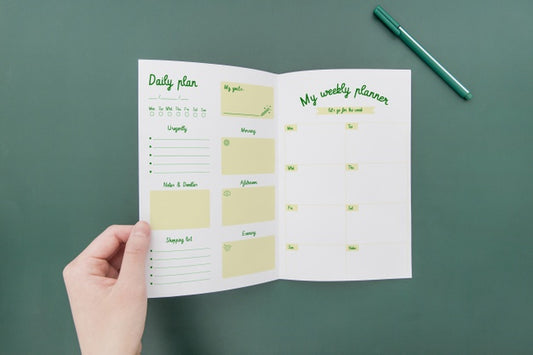 Daily plan
Mon Tue Wed Thu Fri Sat Sun
Urgently
Notes & Doodles
Shopping list
My goals:
Morning
Afternoon
Evening
My weekly planner
Let's go for this week
Mon Tue
Wed Thu
Fri Sat
Sun Notes